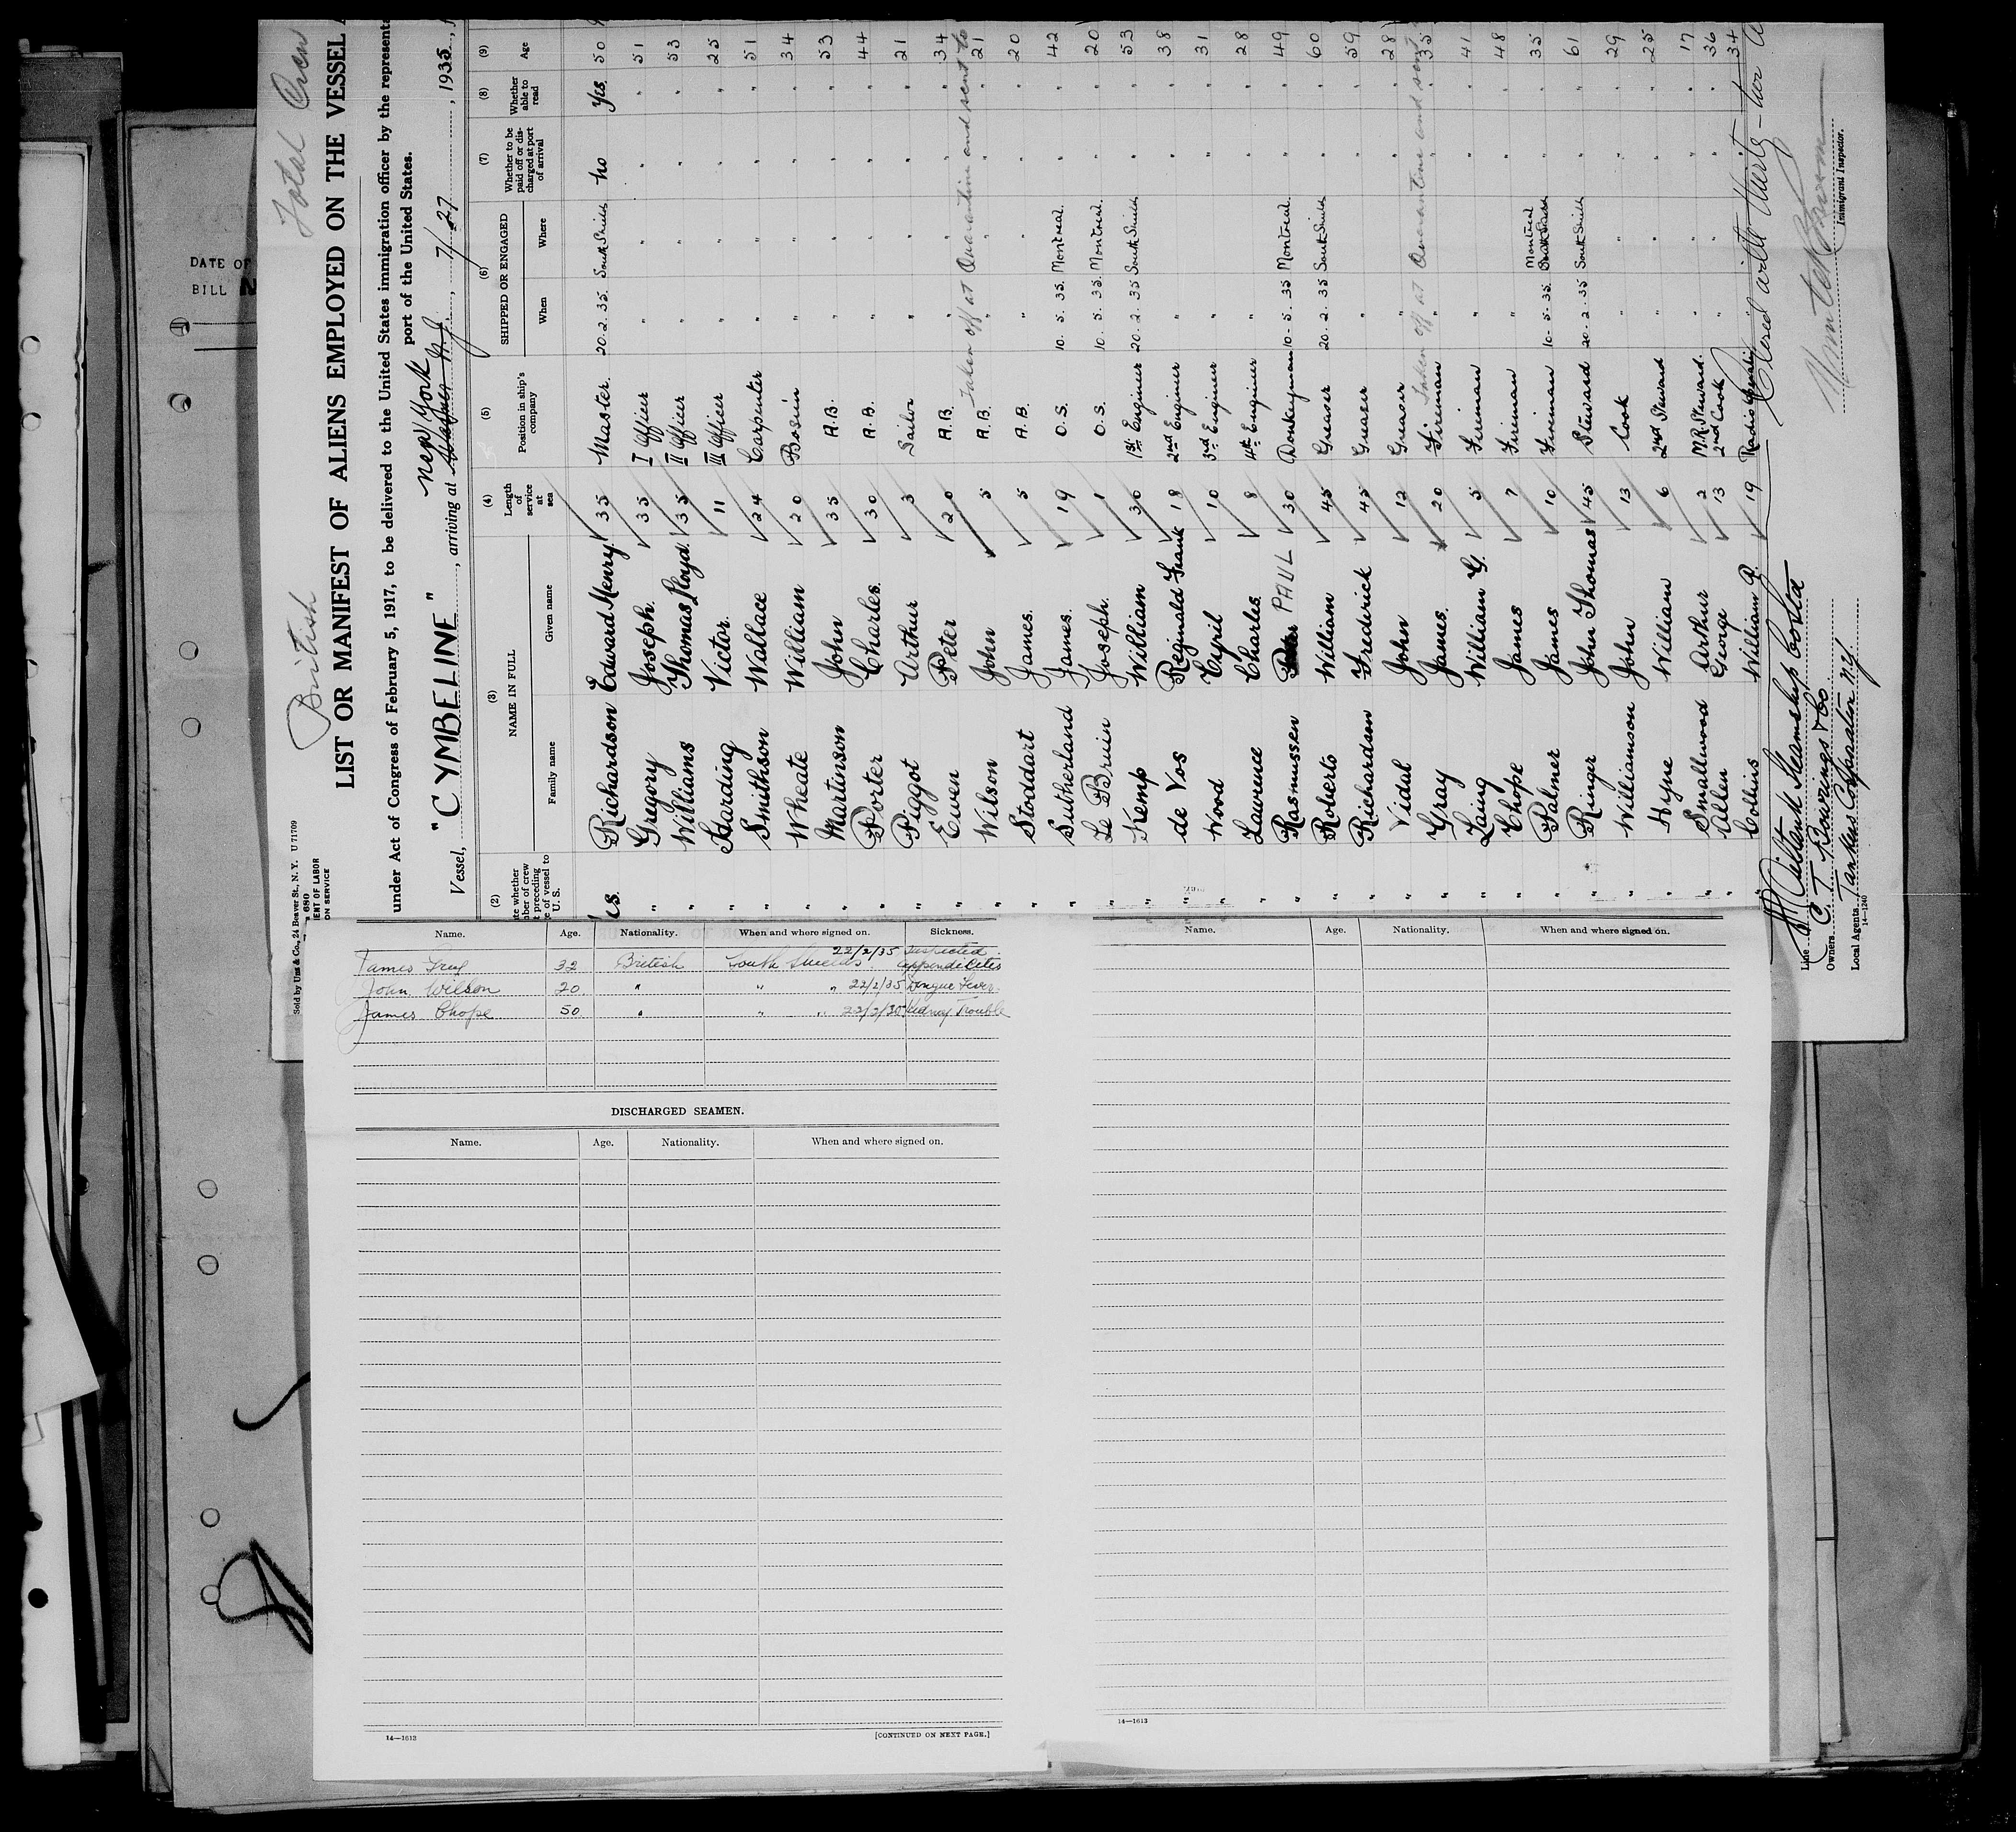 DATE OF
BILL N
British
Total Crew
Sold by Unz & Co., 24 Beaver St., N. Y. U 71709
680
ENT OF LABOR
ON SERVICE
LIST OR MANIFEST OF ALIENS EMPLOYED ON THE VESSEL
under Act of Congress of February 5, 1917, to be delivered to the United States immigration officer by the representa
port of the United States.
New York
Vessel, "CYMBELINE", arriving at N.J., 7/27, 1935,
(2) (3) (4) (5) (6) (7) (8) (9)
te whether mber of crew t preceding e of vessel to U. S. NAME IN FULL Length of service at sea Position in ship's company SHIPPED OR ENGAGED Whether to be paid off or discharged at port of arrival Whether able to read Age
Family name Given name When Where
es. Richardson Edward Henry 35 Master. 20.2.35. South Shields no Yes. 50
" Gregory Joseph. 35 I Officer " " " " 51
" Williams Thomas Lloyd. 35 II Officer " " " " 53
" Harding Victor. 11 III Officer " " " " 25
" Smithson Wallace 24 Carpenter " " " " 51
" Wheate William 20 Bosun " " " " 34
" Martinson John 35 A.B. " " " " 53
" Porter Charles. 30 A.B. " " " " 44
" Piggot Arthur 3 Sailor " " " " 21
" Ewen Peter 20 A.B. " " " " 34
Taken off at Quarantine and sent to
" Wilson John 5 A.B. " " " " 21
" Stoddart James. 5 A.B. " " " " 20
" Sutherland James. 19 O.S. 10.5.35. Montreal. " " 42
" Le Bruin Joseph. 1 O.S. 10.5.35. Montreal. " " 20
" Kemp William 30 1st Engineer 20.2.35 South Shields " " 53
" de Vos Reginald Frank 18 2nd Engineer " " " " 38
" Wood Cyril 10 3rd Engineer " " " " 31
" Lawrence Charles. 8 4th Engineer " " " " 28
" Rasmussen PAUL 30 Donkeyman 10.5.35 Montreal. " " 49
" Roberts William 45 Greaser 20.2.35 South Shields " " 60
" Richardson Frederick 45 Greaser " " " " 59
" Vidal John 12 Greaser " " " " 28
Taken off at Quarantine and sent
" Gray James. 20 Fireman " " " " 35
" Laing William G. 5 Fireman " " " " 41
" Chope James 7 Fireman " " " " 48
" Palmer James 10 Fireman 10.5.35. Montreal " " 35
" Ringer John Thomas 45 Steward 20.2.35 South Shields " " 61
" Williamson John 13 Cook " " " " 29
" Hyne William 6 2nd Steward " " " " 25
" Smallwood Arthur 2 M.R. Steward. " " " " 17
" Allen George 13 2nd Cook " " " " 36
" Collins William 19 Radio " 34
Line Tank Steamship Co Ltd
Owners C. T. Bowring & Co
Local Agents Tankers Corporation N.Y.
14—1240
Immigrant Inspector.
Name. Age. Nationality. When and where signed on. Sickness.
James Gray 32 British South Shields 22/2/35 Suspected appendicitis
John Wilson 20 " " " 22/2/35 Dengue Fever
James Chope 50 " " " 22/2/35 Kidney Trouble
DISCHARGED SEAMEN.
Name. Age. Nationality. When and where signed on.
14—1613 [CONTINUED ON NEXT PAGE.]
Name. Age. Nationality. When and where signed on.
14—1613